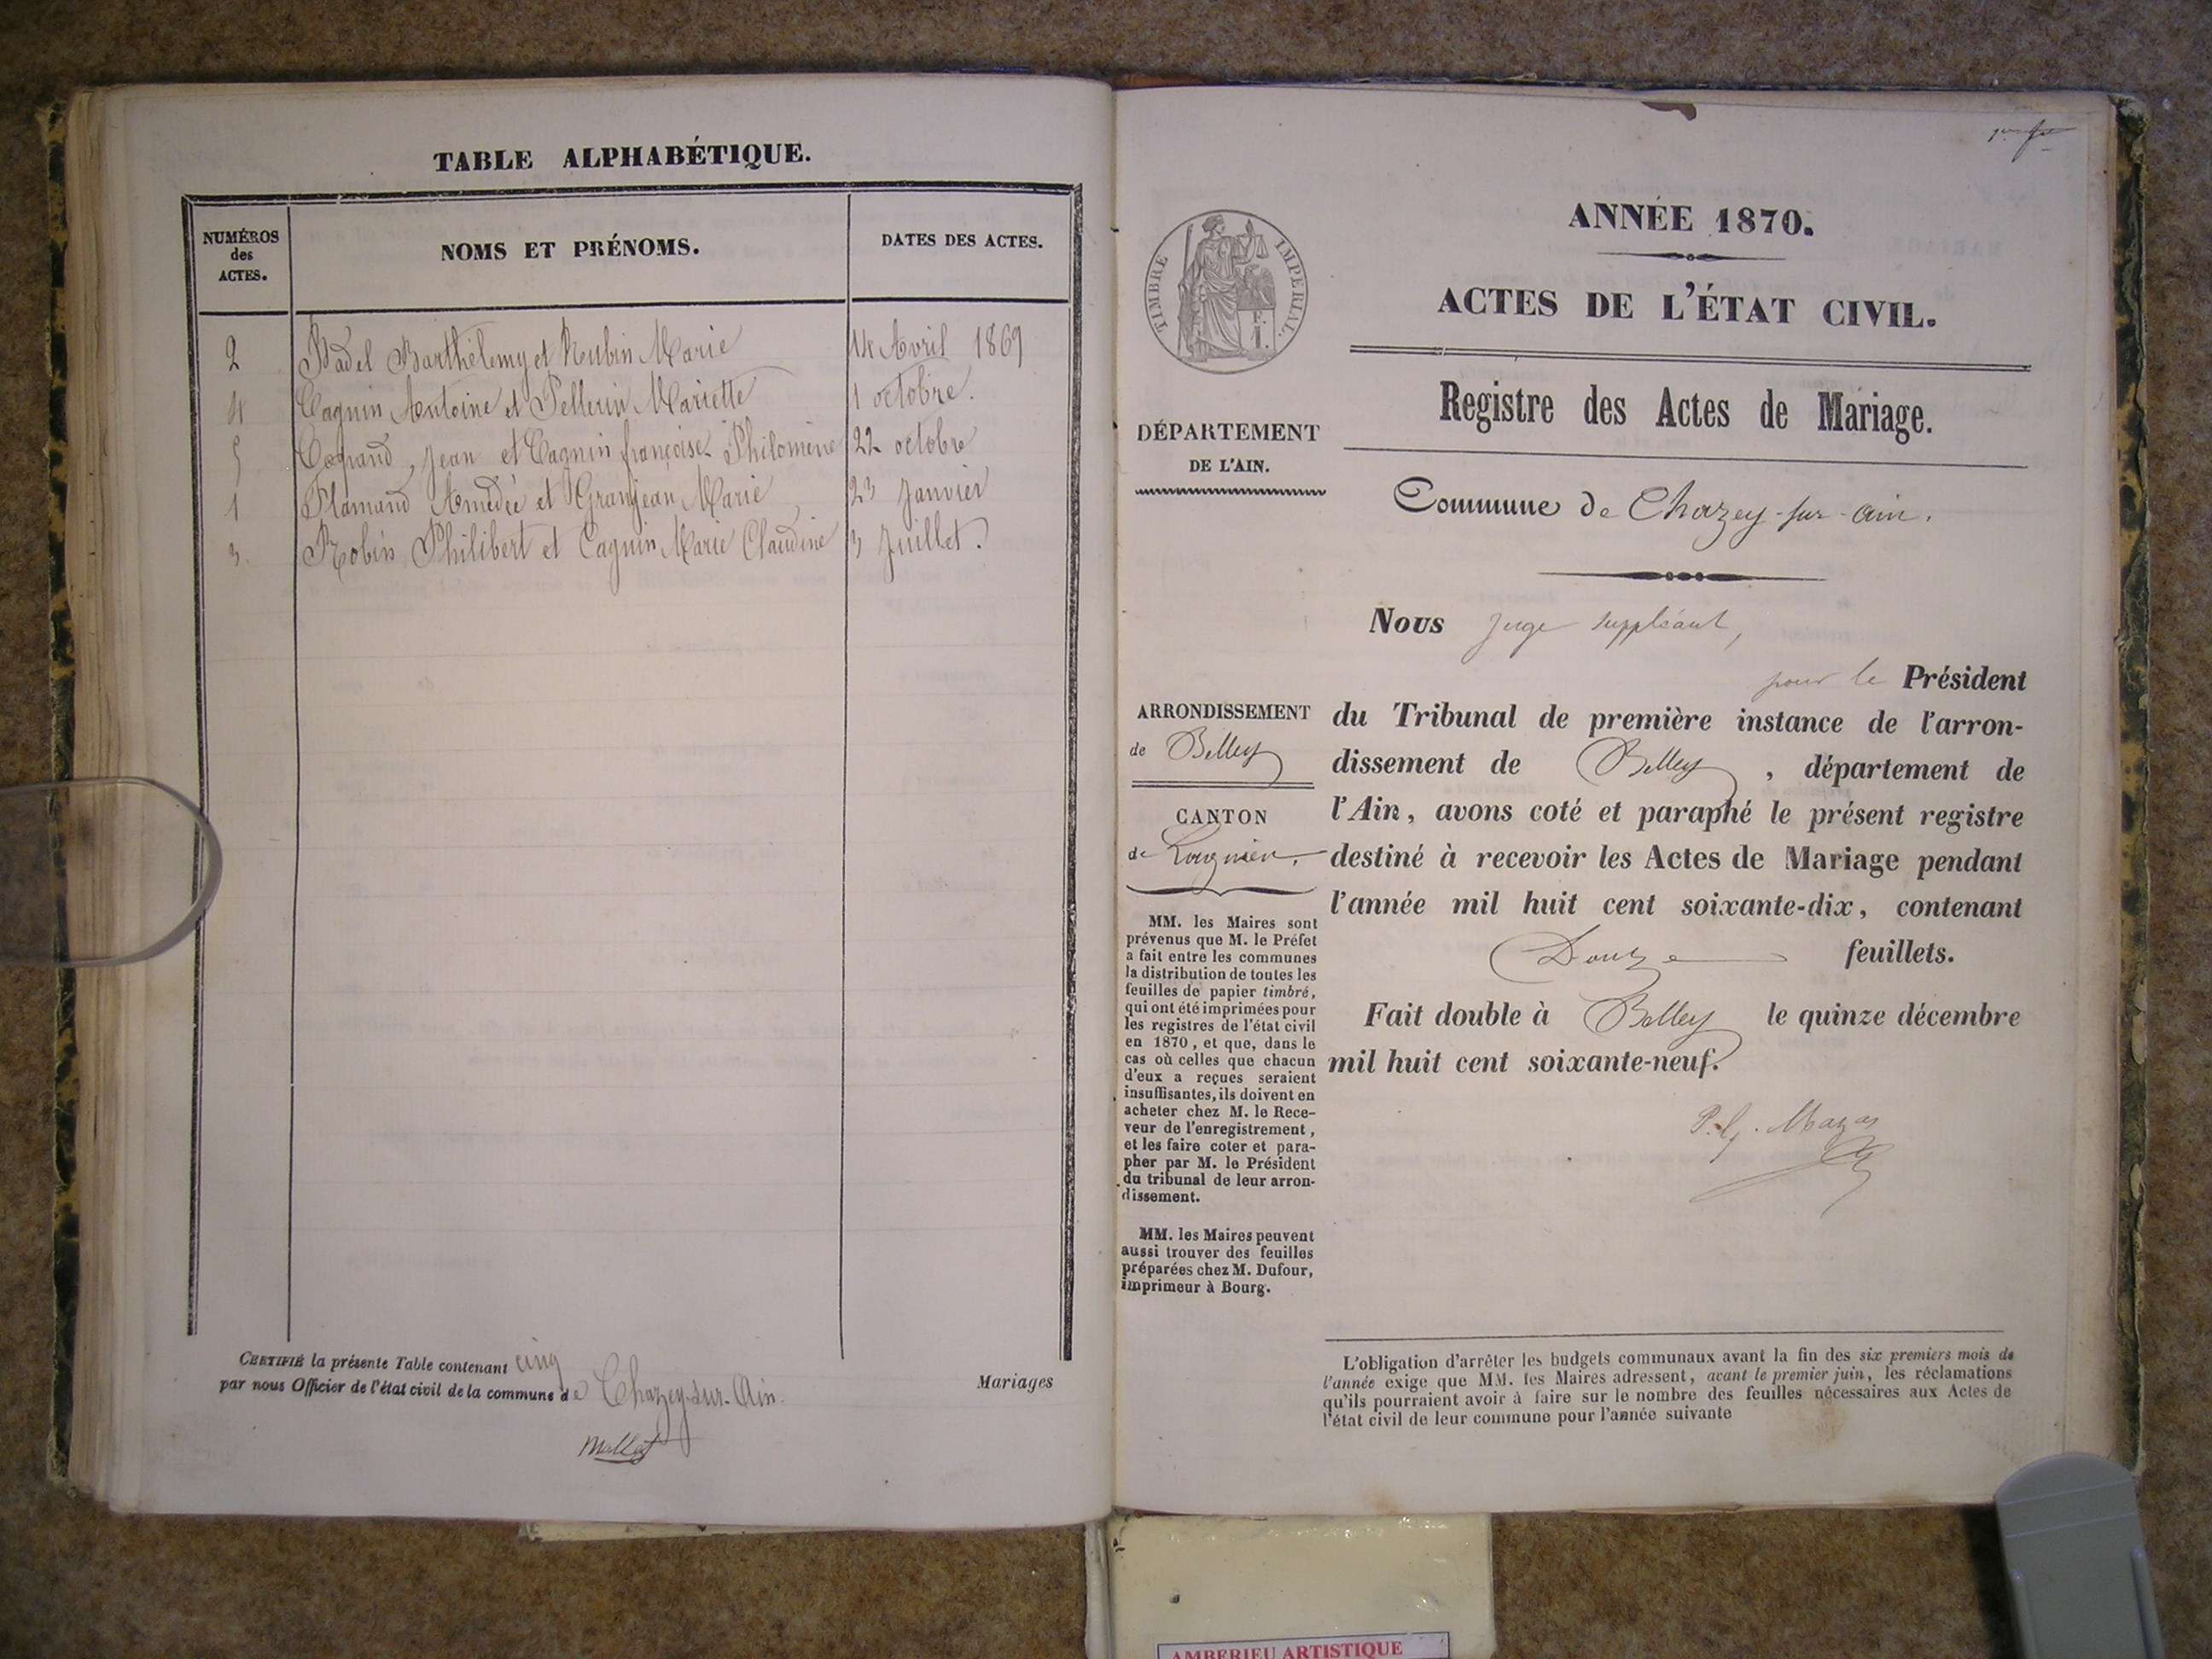 TABLE ALPHABÉTIQUE.
NUMÉROS des ACTES.
NOMS ET PRÉNOMS.
DATES DES ACTES.
2 Badel Barthélemy et Rubin Marie 14 Avril 1869
4 Cagnin Antoine et Pellerin Mariette 1 octobre.
5 Jean et Cagnin françoise Philomène 22 octobre
1 Flamand Amédée et Granjean Marie 23 Janvier
3. Robin Philibert et Cagnin Marie Claudine 3 Juillet.
CERTIFIÉ la présente Table contenant cinq Mariages
par nous Officier de l'état civil de la commune de Chazey-sur-Ain.
1er
TIMBRE IMPERIAL.
ANNÉE 1870.
ACTES DE L'ÉTAT CIVIL.
Registre des Actes de Mariage.
DÉPARTEMENT
DE L'AIN.
Commune de Chazey-sur-ain.
Nous Juge suppléant,
pour le Président
du Tribunal de première instance de l'arron-
dissement de Belley, département de
l'Ain, avons coté et paraphé le présent registre
destiné à recevoir les Actes de Mariage pendant
l'année mil huit cent soixante-dix, contenant
Douze feuillets.
Fait double à Belley le quinze décembre
mil huit cent soixante-neuf.
Mazas
ARRONDISSEMENT
de Belley
CANTON
de Lagnieu.
MM. les Maires sont
prévenus que M. le Préfet
a fait entre les communes
la distribution de toutes les
feuilles de papier timbré,
qui ont été imprimées pour
les registres de l'état civil
en 1870, et que, dans le
cas où celles que chacun
d'eux a reçues seraient
insuffisantes, ils doivent en
acheter chez M. le Rece-
veur de l'enregistrement,
et les faire coter et para-
pher par M. le Président
du tribunal de leur arron-
dissement.
MM. les Maires peuvent
aussi trouver des feuilles
préparées chez M. Dufour,
imprimeur à Bourg.
L'obligation d'arrêter les budgets communaux avant la fin des six premiers mois de
l'année exige que MM. les Maires adressent, avant le premier juin, les réclamations
qu'ils pourraient avoir à faire sur le nombre des feuilles nécessaires aux Actes de
l'état civil de leur commune pour l'année suivante
AMBERIEU ARTISTIQUE